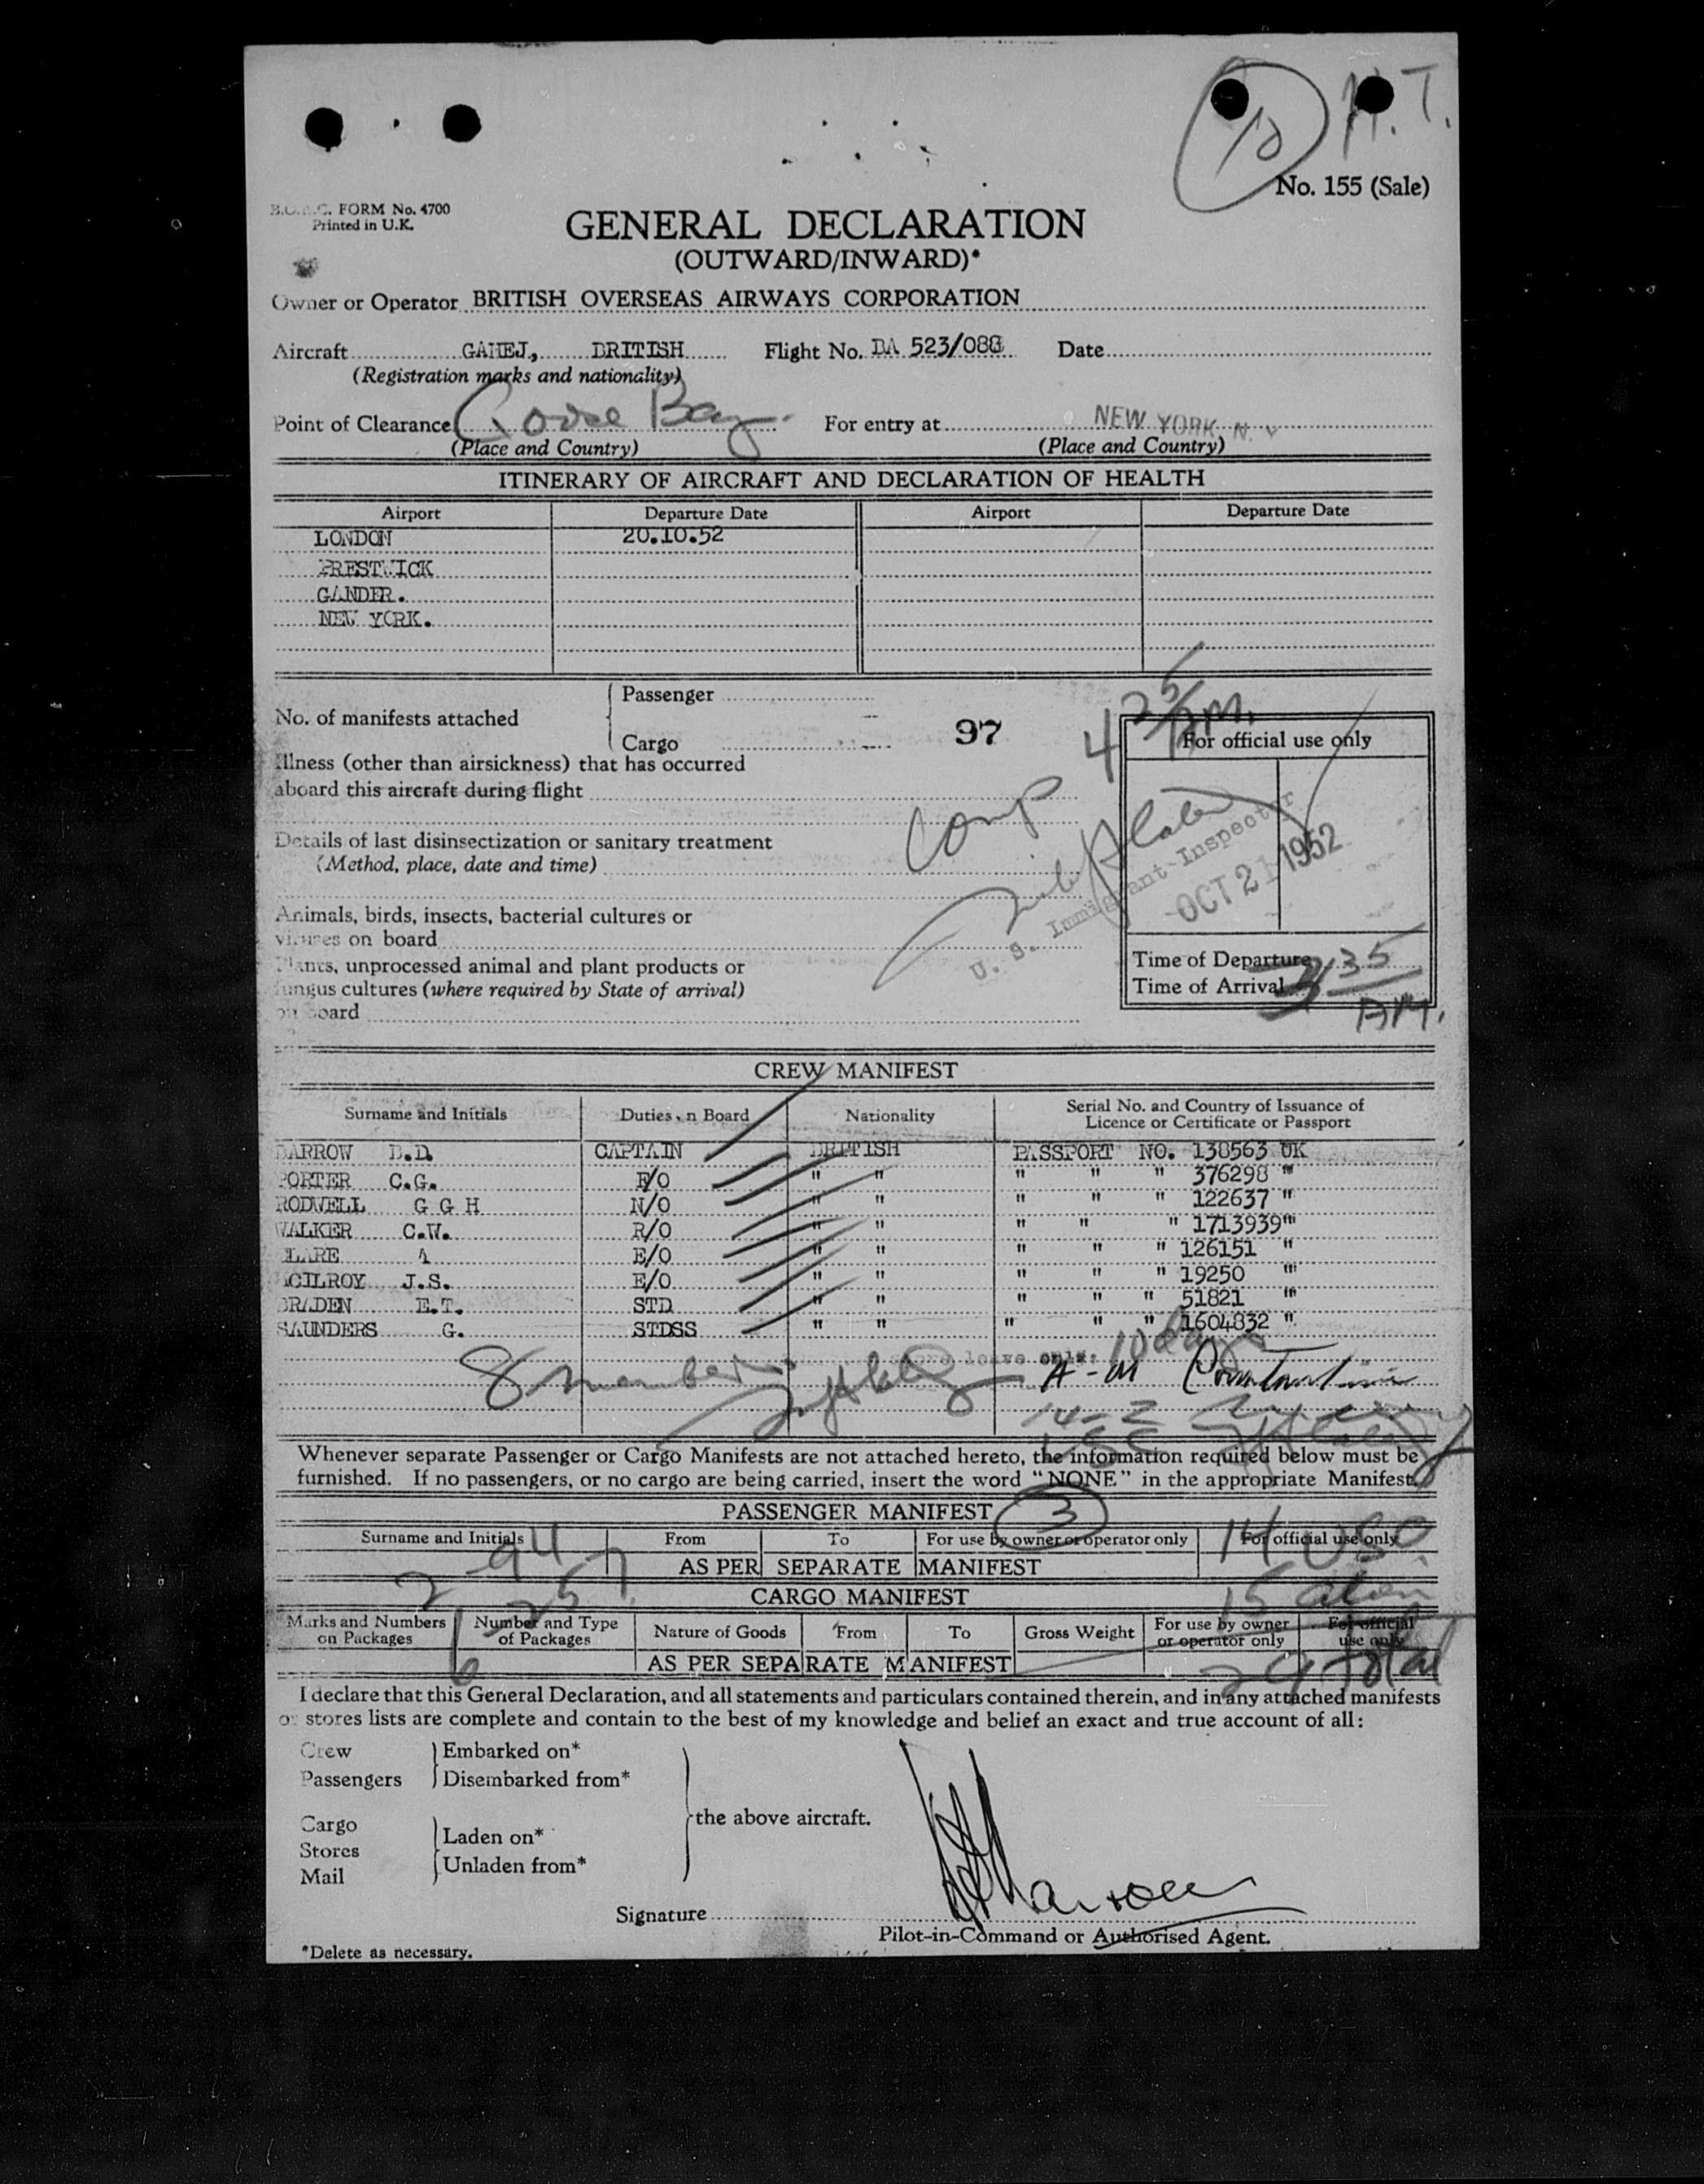 10 N.T.
No. 155 (Sale)
B.O.A.C. FORM No. 4700
Printed in U.K.
GENERAL DECLARATION
(OUTWARD/INWARD)*
Owner or Operator BRITISH OVERSEAS AIRWAYS CORPORATION
Aircraft GAHEJ, BRITISH Flight No. BA 523/088 Date
(Registration marks and nationality)
Point of Clearance Goose Bay For entry at NEW YORK N. Y
(Place and Country) (Place and Country)
ITINERARY OF AIRCRAFT AND DECLARATION OF HEALTH
Airport Departure Date Airport Departure Date
LONDON 20.10.52
PRESTWICK
GANDER.
NEW YORK.
No. of manifests attached
Passenger
Cargo
97
4 25 P.M.
For official use only
Illness (other than airsickness) that has occurred
aboard this aircraft during flight
Comp
Details of last disinsectization or sanitary treatment
(Method, place, date and time)
U. S. Immigrant-Inspector
OCT 21 1952
Animals, birds, insects, bacterial cultures or
viruses on board
Plants, unprocessed animal and plant products or
fungus cultures (where required by State of arrival)
on board
Time of Departure
Time of Arrival
35
AM.
CREW MANIFEST
Surname and Initials Duties on Board Nationality Serial No. and Country of Issuance of
Licence or Certificate or Passport
BARROW D.D. CAPTAIN BRITISH PASSPORT NO. 138563 UK
PORTER C.G. F/O " " " " " 376298 "
RODWELL G G H N/O " " " " " 122637 "
WALKER C.W. R/O " " " " " 1713939 "
CLARE A E/O " " " " " 126151 "
MCILROY J.S. E/O " " " " " 19250 "
BRADEN E.T. STD " " " " " 51821 "
SAUNDERS G. STDSS " " " " " 1604832 "
shore leave only: 10 days
8 members A-M
14-2
Whenever separate Passenger or Cargo Manifests are not attached hereto, the information required below must be
furnished. If no passengers, or no cargo are being carried, insert the word "NONE" in the appropriate Manifest.
PASSENGER MANIFEST 3
Surname and Initials From To For use by owner or operator only For official use only
14 USC
AS PER SEPARATE MANIFEST
15 alien
CARGO MANIFEST
Marks and Numbers on Packages Number and Type of Packages Nature of Goods From To Gross Weight For use by owner or operator only For official use only
AS PER SEPARATE MANIFEST
29 total
I declare that this General Declaration, and all statements and particulars contained therein, and in any attached manifests
or stores lists are complete and contain to the best of my knowledge and belief an exact and true account of all:
Crew
Passengers
Embarked on*
Disembarked from*
Cargo
Stores
Mail
Laden on*
Unladen from*
the above aircraft.
Signature
Pilot-in-Command or Authorised Agent.
*Delete as necessary.